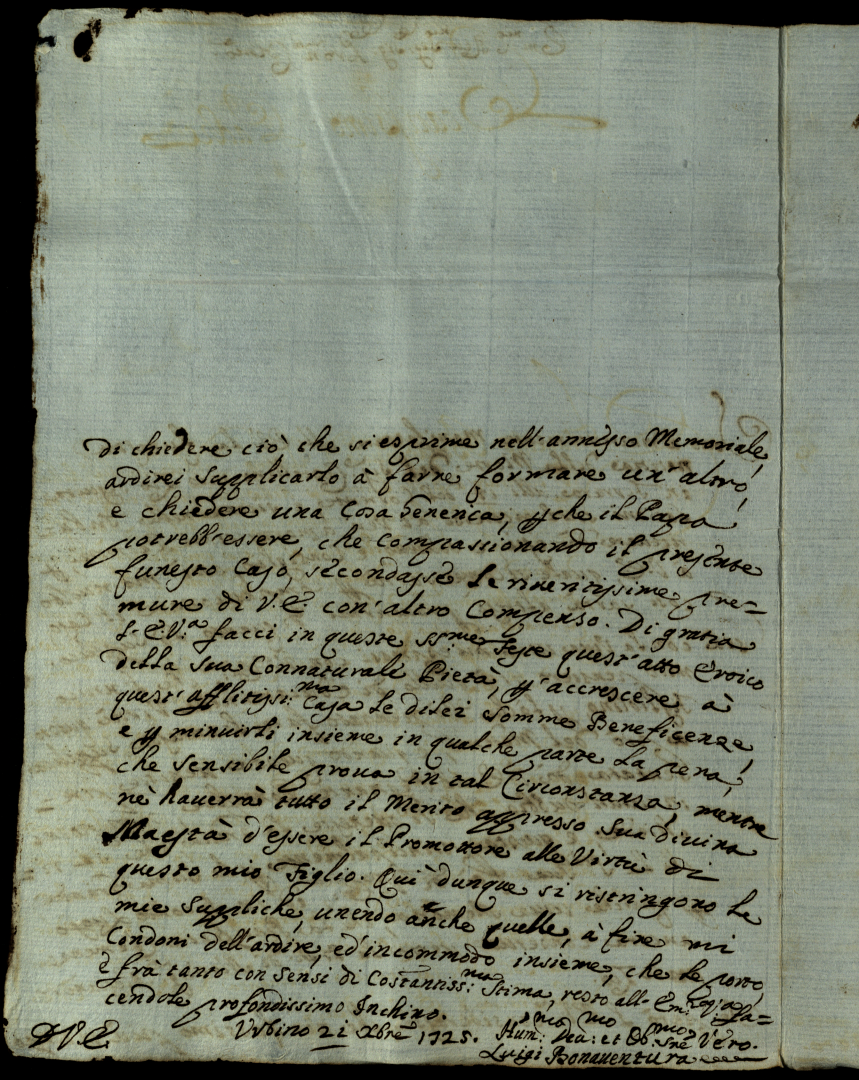 di chiedere ciò, che si esprime nell'annesso Memoriale,
ardirei supplicarlo à farne formare un'altro,
e chiedere una Cosa generica, p che il Papa
potrebb'essere, che compassionando il presente
funesto Caso, secondasse le riveritissime pre=
mure di V. E. con'altro Compenso. Di gratia
l'E.V.a facci in queste SS.me Feste quest'atto Eroico
della sua Connaturale Pietà, p accrescere à
quest'afflitissi:ma Casa le di lei somme Beneficenze,
e p minuirli insieme in qualche parte la pena,
che sensibile prova in tal Circonstanza, mentre
nè haverrà tutto il Merito appresso Sua Divina
Maestà d'essere il Promottore alle Virtù di
questo mio Figlio. Quì dunque si ristringono le
mie suppliche, unendo anche quelle, à fine mi
Condoni dell'ardire, ed'incommodo insieme, che le porto,
e frà tanto con sensi di Costantiss:ma Stima, resto all'Em:
cendole profondissimo Inchino.
Urbino 21 Xbre 1725. Hum:mo Dev:mo et Ob:mo Sre Vero.
D V. E. Luigi Bonaventura